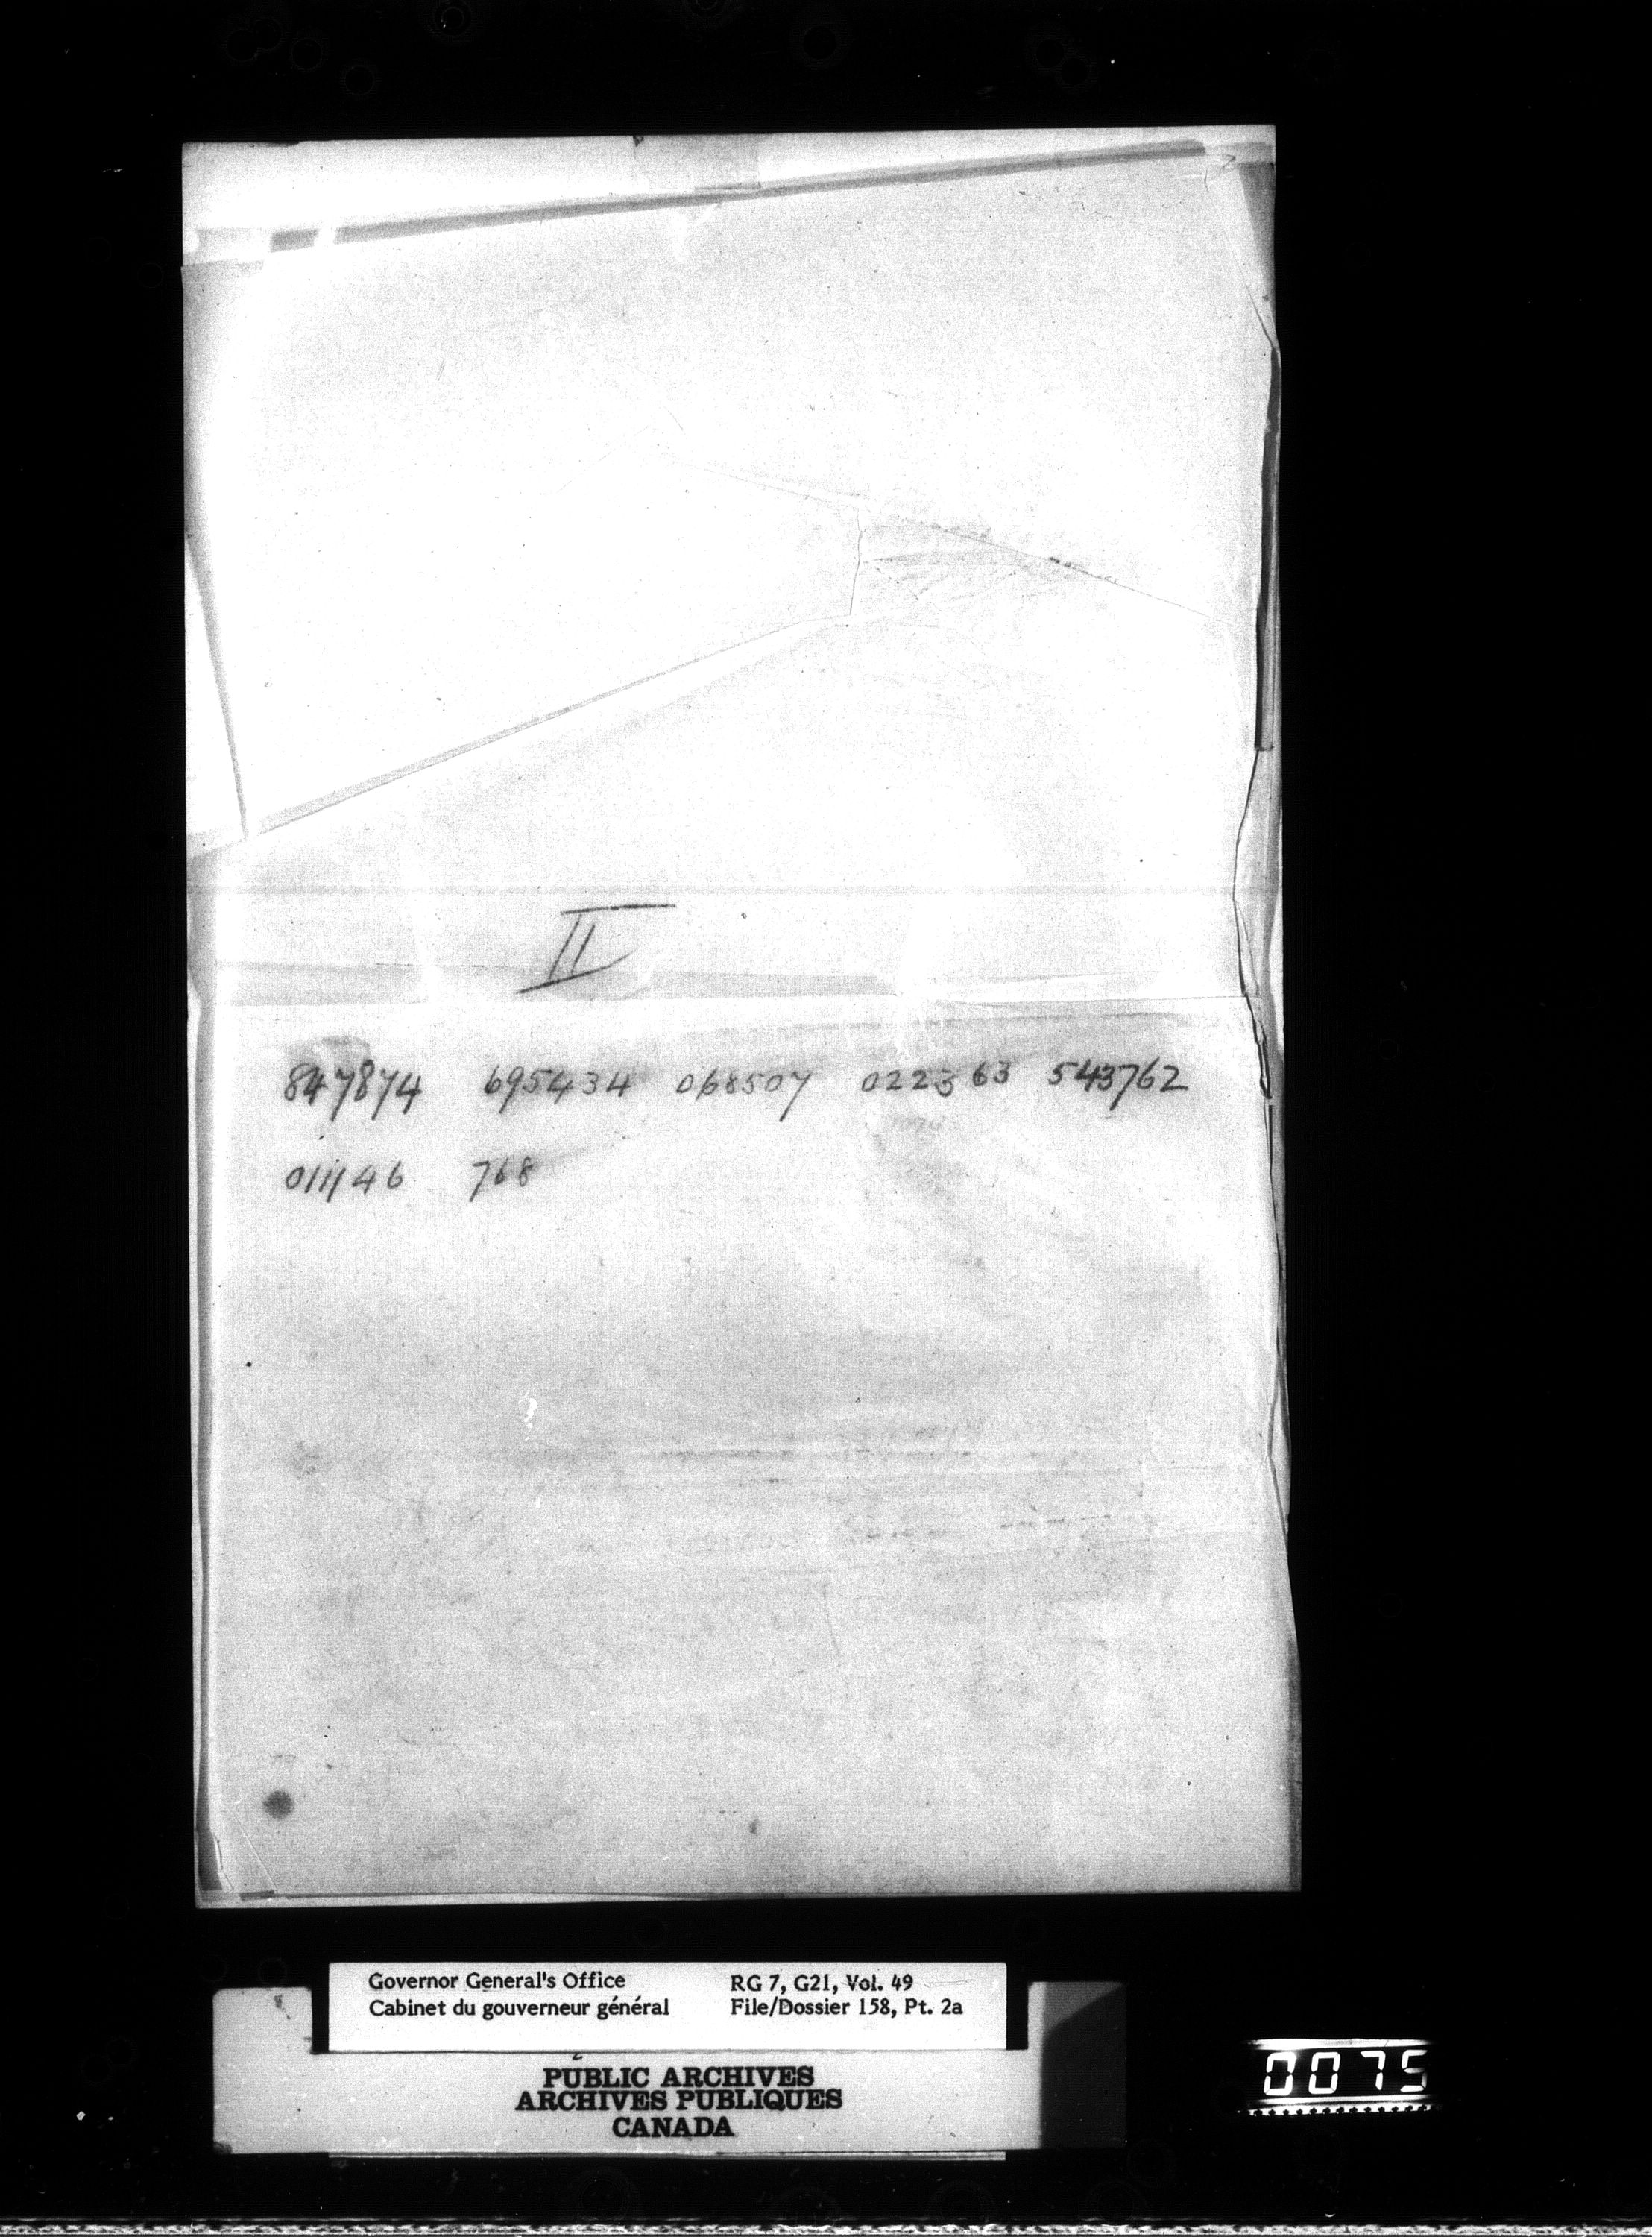 II
847874 695434 068507 022363 543762
011146 768
Governor General's Office RG 7, G21, Vol. 49
Cabinet du gouverneur général File/Dossier 158, Pt. 2a
PUBLIC ARCHIVES
ARCHIVES PUBLIQUES
CANADA
0075